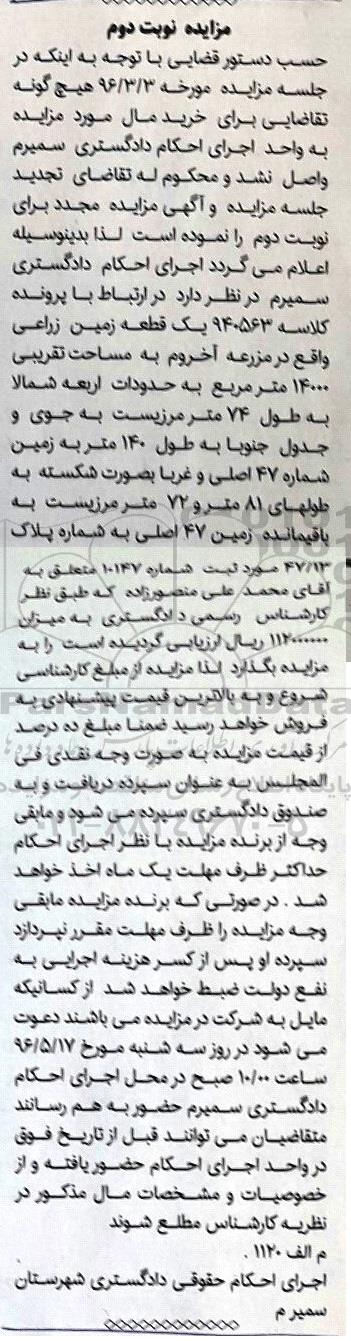 مزایده نوبت دوم
حسب دستور قضایی با توجه به اینکه در
جلسه مزایده مورخه ۹۶/۳/۳ هیچ گونه
تقاضایی برای خرید مال مورد مزایده
به واحد اجرای احکام دادگستری سمیرم
واصل نشد و محکوم له تقاضای تجدید
جلسه مزایده و آگهی مزایده مجدد برای
نوبت دوم را نموده است لذا بدینوسیله
اعلام می گردد اجرای احکام دادگستری
سمیرم در نظر دارد در ارتباط با پرونده
کلاسه ۹۴۰۵۶۳ یک قطعه زمین زراعی
واقع در مزرعه آخروم به مساحت تقریبی
۱۴۰۰۰ متر مربع به حدودات اربعه شمالا
به طول ۷۴ متر مرزیست به جوی و
جدول جنوبا به طول ۱۴۰ متر به زمین
شماره ۴۷ اصلی و غربا بصورت شکسته به
طولهای ۸۱ متر و ۷۲ متر مرزیست به
باقیمانده زمین ۴۷ اصلی به شماره پلاک
۴۷/۱۳ مورد ثبت شماره ۱۰۱۴۷ متعلق به
آقای محمد علی منصورزاده که طبق نظر
کارشناس رسمی دادگستری به میزان
۱۱۲۰۰۰۰۰۰ ریال ارزیابی گردیده است را به
مزایده بگذارد لذا مزایده از مبلغ کارشناسی
شروع و به بالاترین قیمت پیشنهادی به
فروش خواهد رسید ضمنا مبلغ ده درصد
از قیمت مزایده به صورت وجه نقدی فی
المجلس به عنوان سپرده دریافت و به
صندوق دادگستری سپرده می شود و مابقی
وجه از برنده مزایده با نظر اجرای احکام
حداکثر ظرف مهلت یک ماه اخذ خواهد
شد . در صورتی که برنده مزایده مابقی
وجه مزایده را ظرف مهلت مقرر نپردازد
سپرده او پس از کسر هزینه اجرایی به
نفع دولت ضبط خواهد شد از کسانیکه
مایل به شرکت در مزایده می باشند دعوت
می شود در روز سه شنبه مورخ ۹۶/۵/۱۷
ساعت ۱۰/۰۰ صبح در محل اجرای احکام
دادگستری سمیرم حضور به هم رسانند
متقاضیان می توانند قبل از تاریخ فوق
در واحد اجرای احکام حضور یافته و از
خصوصیات و مشخصات مال مذکور در
نظریه کارشناس مطلع شوند
م الف ۱۱۲۰ .
اجرای احکام حقوقی دادگستری شهرستان
سمیر م